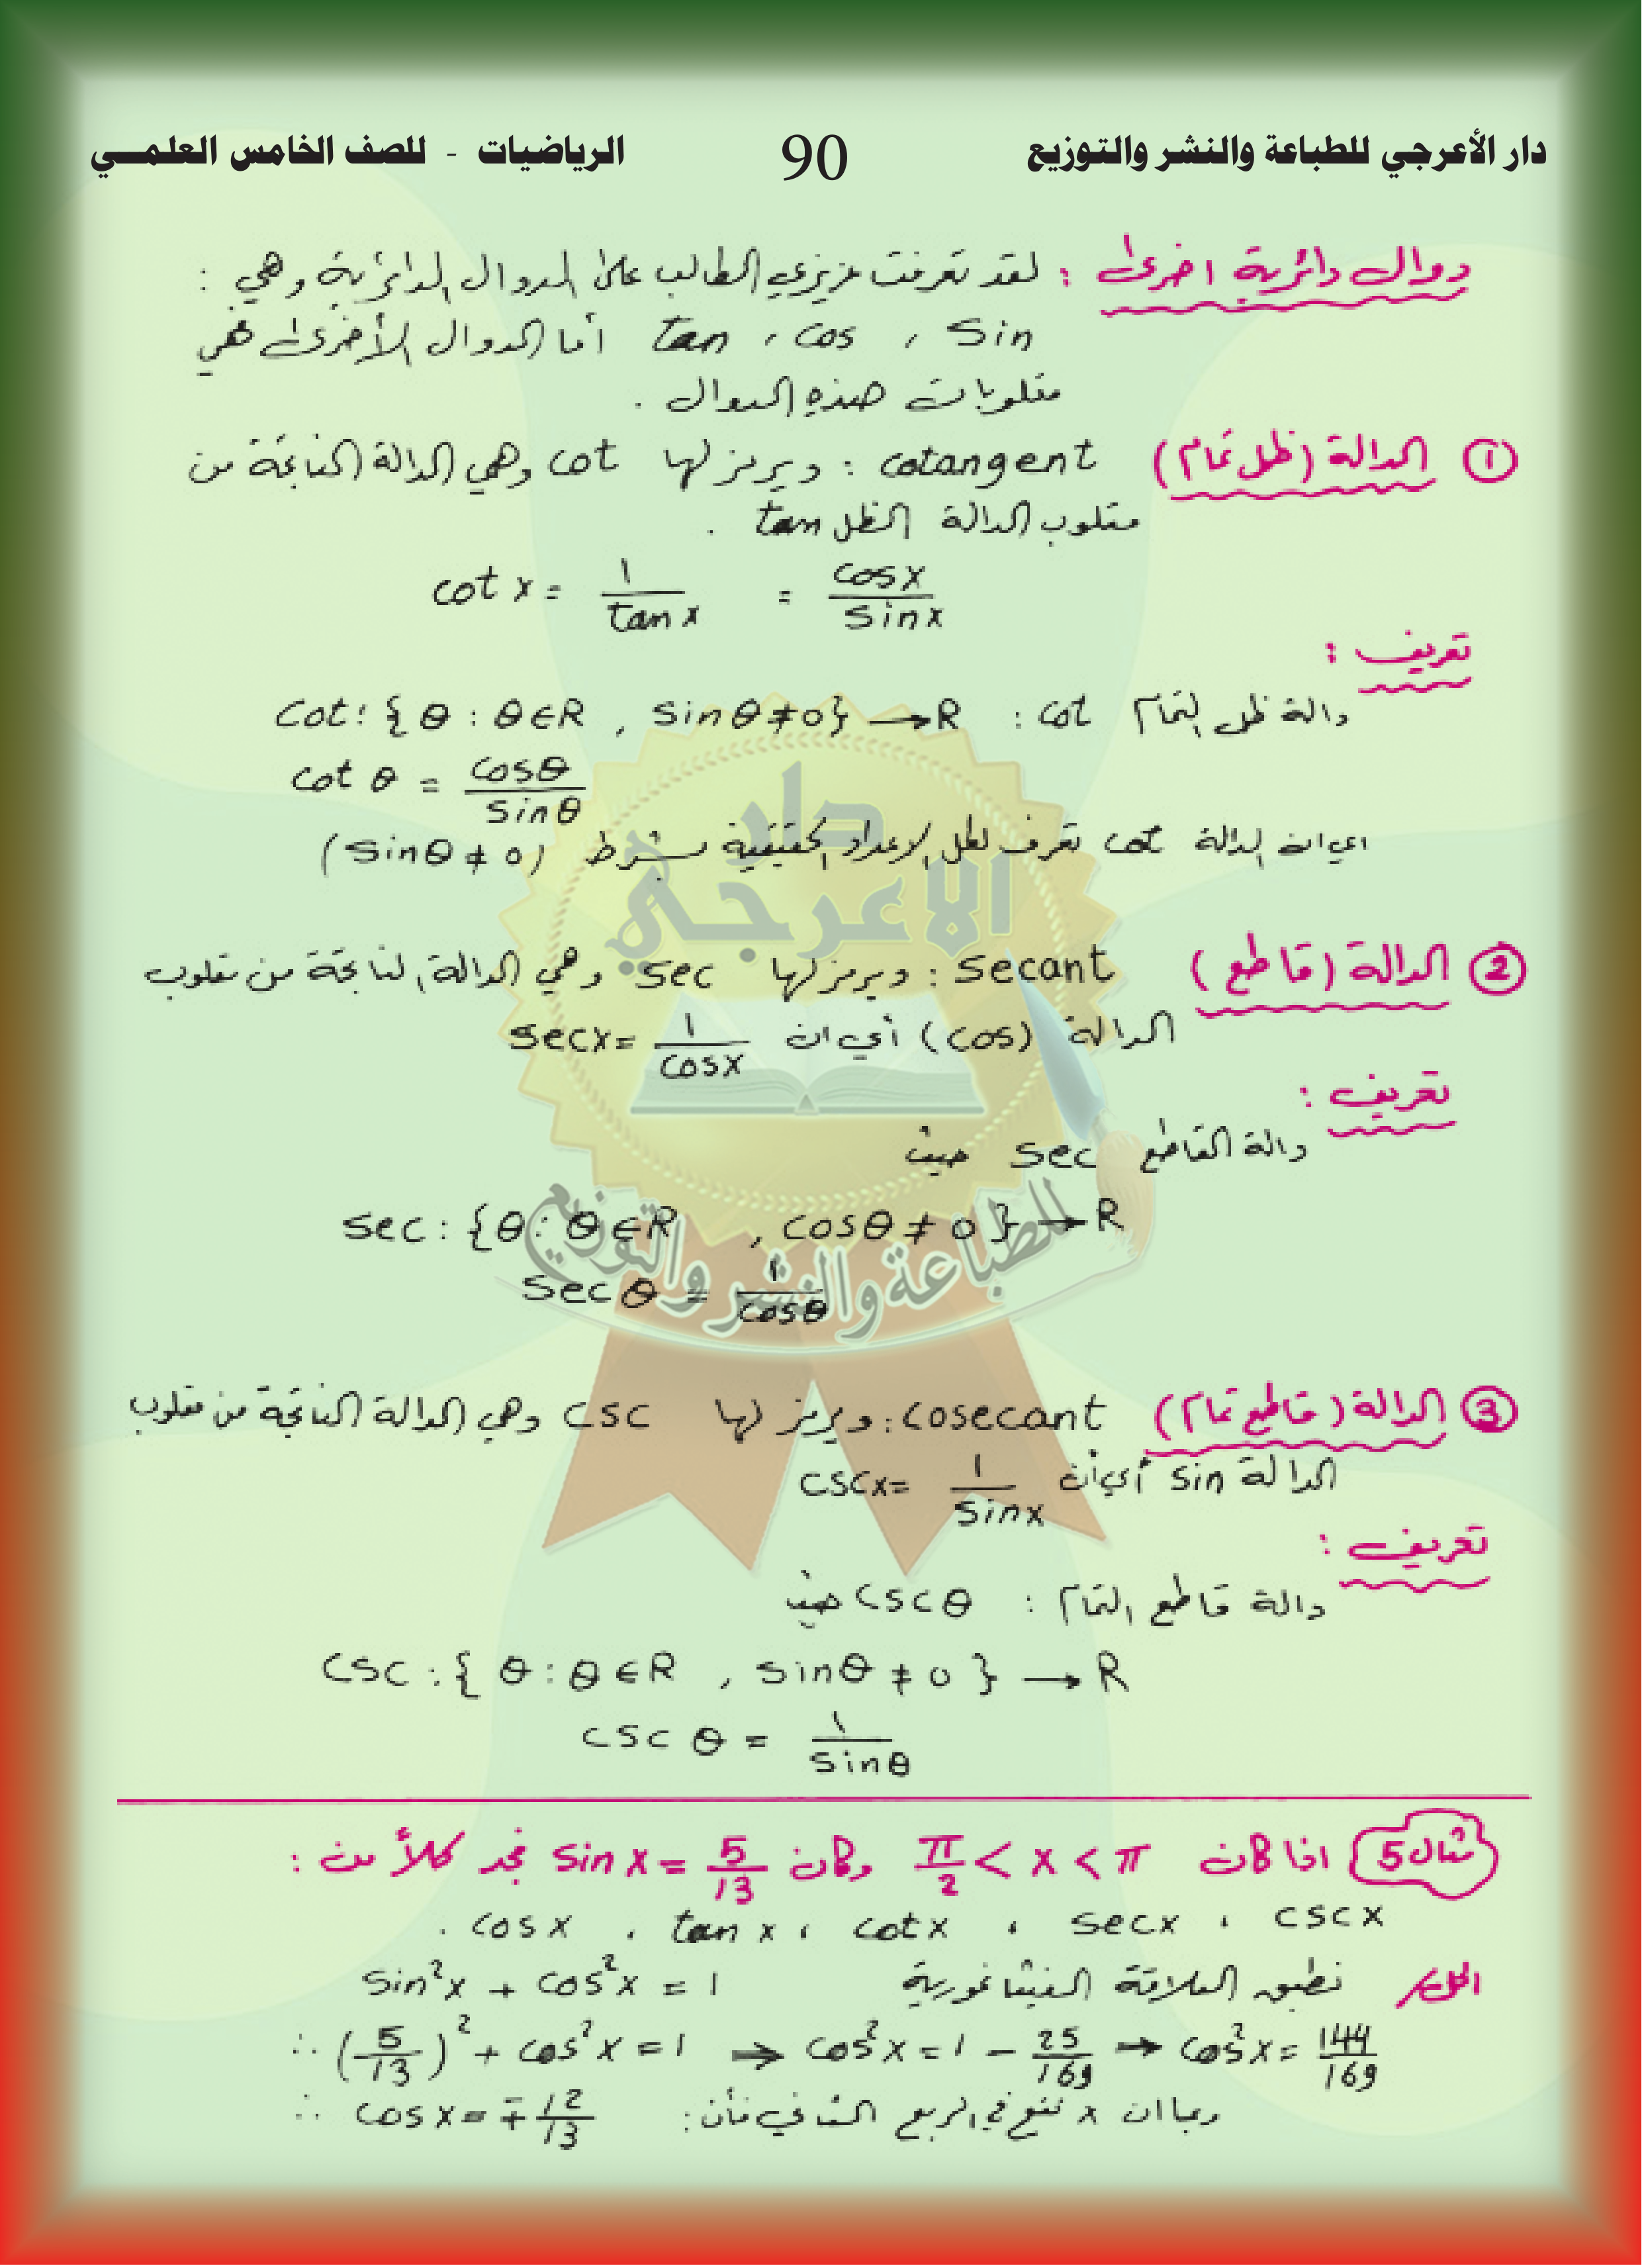 دار الأعرجي للطباعة والنشر والتوزيع 90 الرياضيات - للصف الخامس العلمي
دوال دائرية اخرى : لقد تعرفت عزيزي الطالب على الدوال الدائرية وهي :
sin ، cos ، tan أما الدوال الأخرى هي
مقلوبات هذه الدوال .
① الدالة (ظل تمام) cotangent : ويرمز لها cot وهي الدالة الناتجة من
مقلوب الدالة الظل tan .
cot x = 1/tan x = cos x/sin x
تعريف :
دالة ظل التمام cot : cot : {θ : θ∈R , sinθ ≠ 0} → R
cot θ = cosθ/sinθ
اي ان الدالة cot تعرف لكل الاعداد الحقيقية بشرط (sinθ ≠ 0)
② الدالة (قاطع) secant : ويرمز لها sec وهي الدالة الناتجة من مقلوب
الدالة (cos) أي ان sec x = 1/cos x
تعريف :
دالة القاطع sec حيث
sec : {θ : θ∈R , cosθ ≠ 0} → R
sec θ = 1/cosθ
③ الدالة (قاطع تمام) cosecant : ويرمز لها csc وهي الدالة الناتجة من مقلوب
الدالة sin أي أن csc x = 1/sin x
تعريف :
دالة قاطع التمام : csc θ حيث
csc : {θ : θ∈R , sinθ ≠ 0} → R
csc θ = 1/sinθ
مثال 5 اذا كان π/2 < x < π وكان sin x = 5/13 جد كلاً من :
csc x ، sec x ، cot x ، tan x ، cos x .
الحل نطبق العلاقة الفيثاغورية sin²x + cos²x = 1
∴ (5/13)² + cos²x = 1 ⇒ cos²x = 1 − 25/169 ⇒ cos²x = 144/169
∴ cos x = ∓12/13 وبما ان x تقع في الربع الثاني فأن :
دار
الاعرجي
للطباعة والنشر والتوزيع